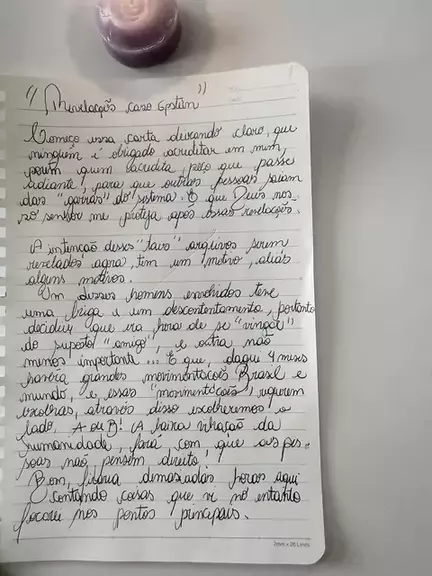 "Revelações caso Epstein"
Começo essa carta deixando claro, que
ninguém é obrigado acreditar em mim,
porém quem acredita, peço que passe
adiante, para que outras pessoas saiam
das "garras" do sistema. E que Deus nos-
so senhor me proteja após essas revelações.
A intenção desses "tais" arquivos serem
revelados agora, tem um motivo, aliás
alguns motivos.
Um desses homens envolvidos teve
uma briga e um descontentamento, portanto
decidiu que era hora de se "vingar"
do suposto "amigo", e outra não
menos importante... É que, daqui 4 meses
haverá grandes movimentações Brasil e
mundo, e essas "movimentações", requerem
escolhas, através disso escolheremos o
lado. A ou B! A baixa vibração da
humanidade, fará, com que as pes-
soas não pensem direito,
Bom, ficaria demasiadas horas aqui
contando coisas que vi no entanto
focarei nos pontos principais.
7mm x 26 Lines